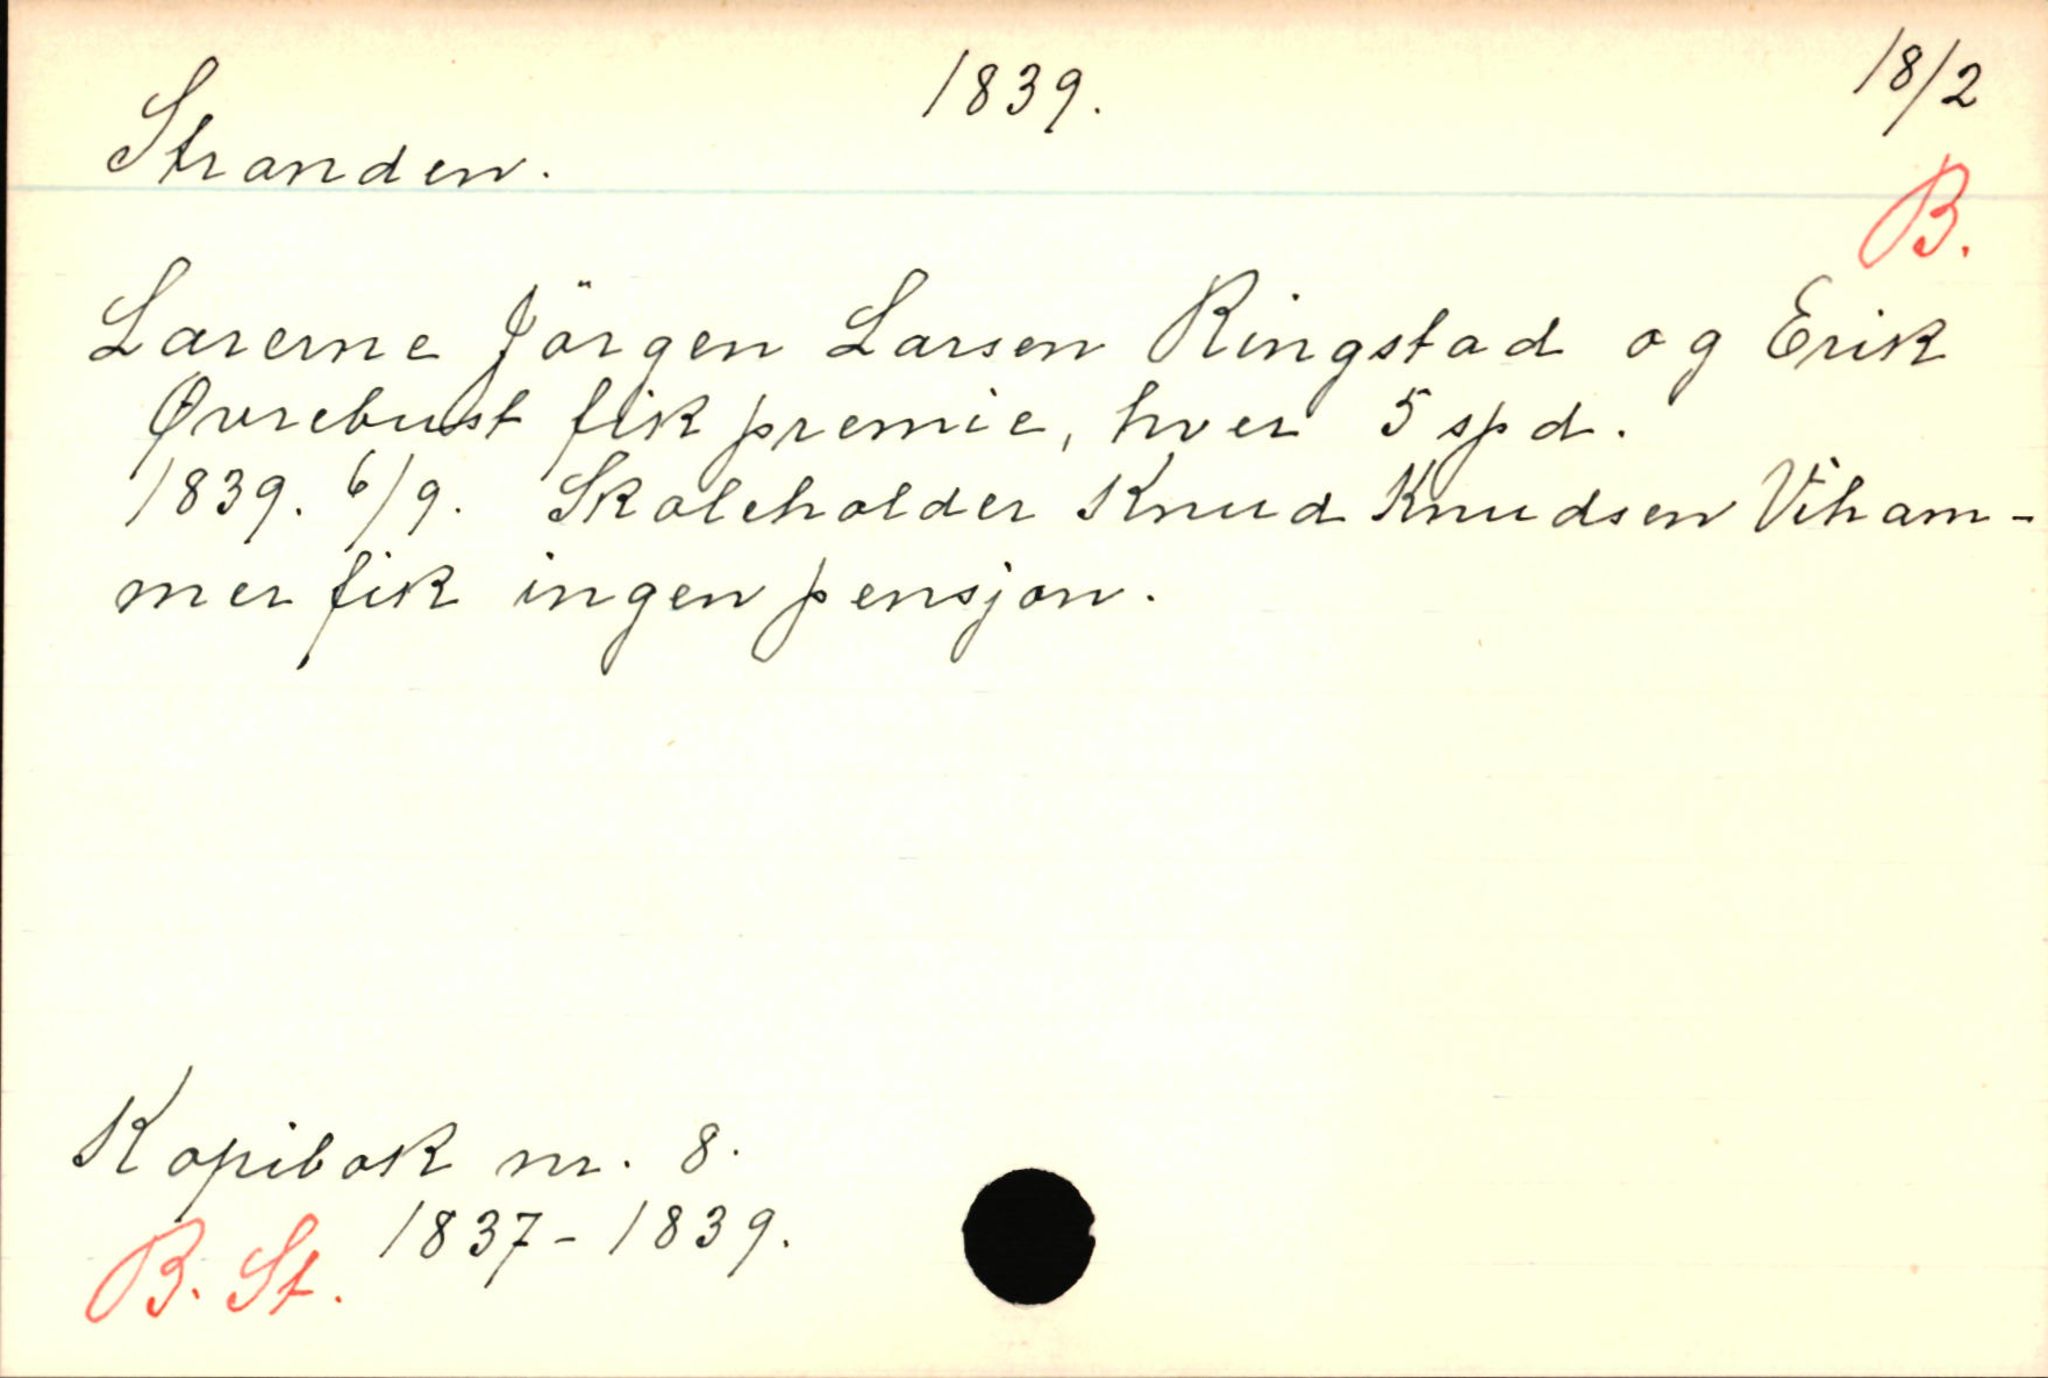 Stranden. 1839. 18/2
B.
Lærerne Jörgen Larsen Ringstad og Erik
Øvrebust fik premie, hver 5 spd.
1839. 6/9. Skoleholder Knud Knudsen Viham-
mer fik ingen pensjon.
Kopibok nr. 8.
1837-1839.
B. St.